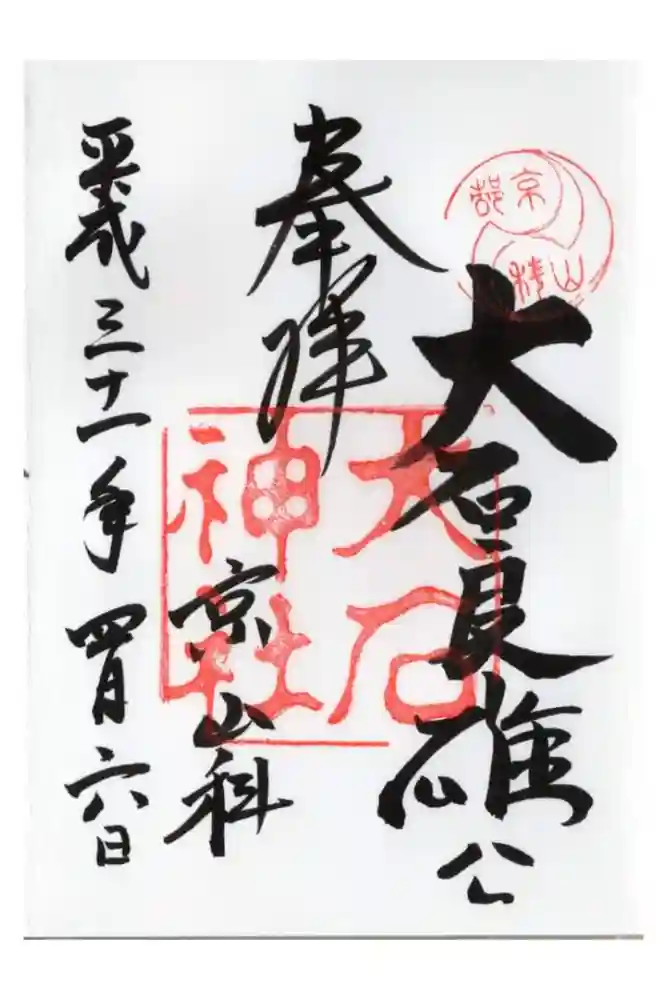 京都
山科
大石良雄公
大石
神社
奉拝
京山科
平成三十一年四月六日